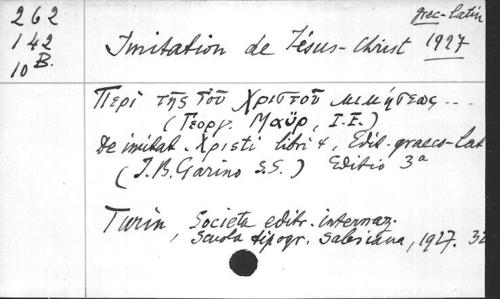 262
142
10 B.
grec-latin
Imitation de Jésus-Christ 1927
Περὶ τῆς τοῦ Χριστοῦ μιμήσεως ...
(Γεοργ. Μαϋρ, Ι.Ε.)
De imitat. Χρisti libri 4, Edit. graeco-lat
(J.B. Garino S.S.) Editio 3ª
Turin, Societa editr. internaz.
Scuola tipogr. salesiana, 1927. 32